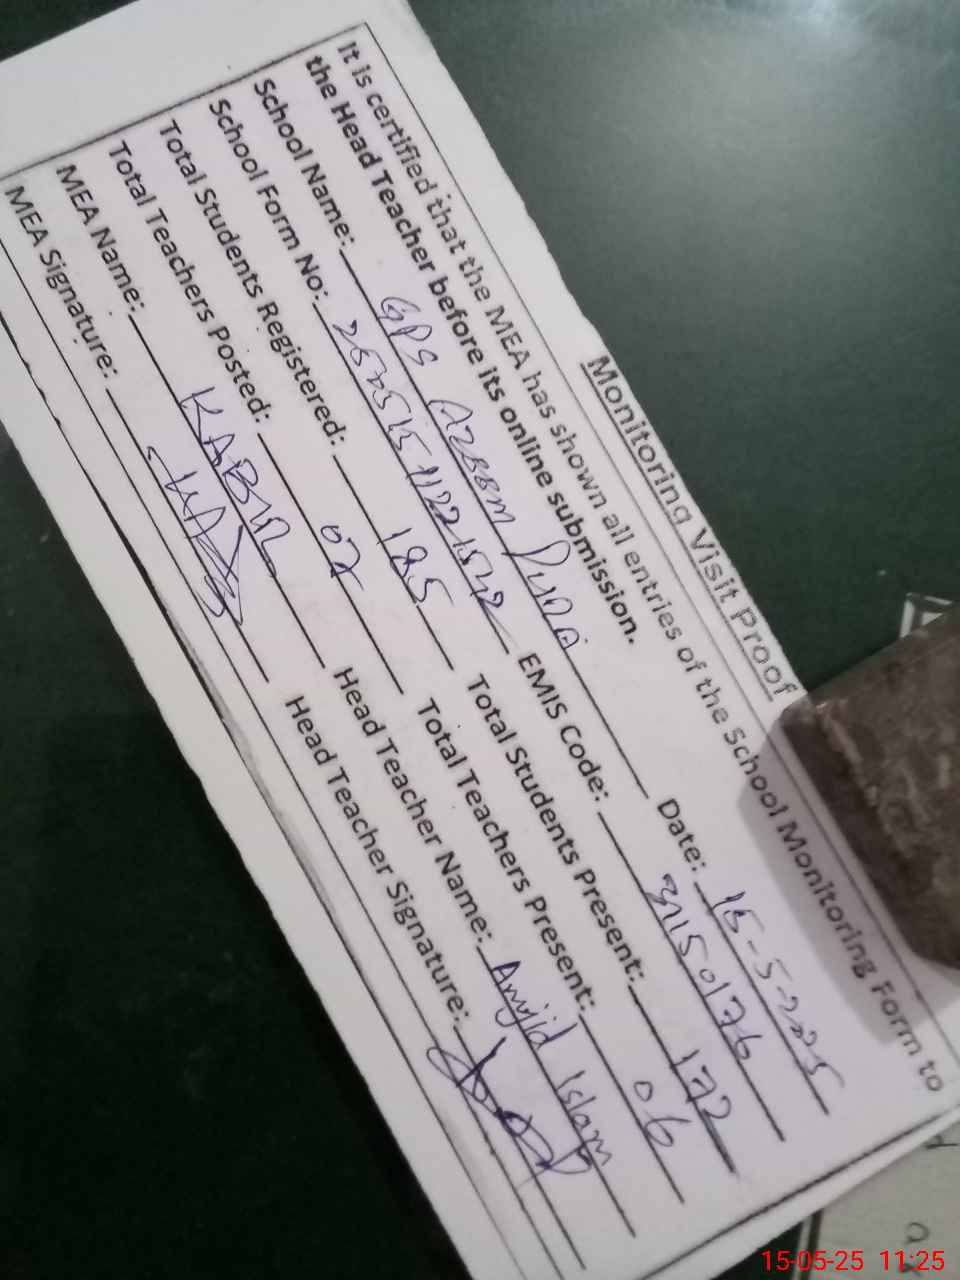 Monitoring Visit Proof
It is certified that the MEA has shown all entries of the School Monitoring Form to
the Head Teacher before its online submission.
School Name: GPS Azeem Date: 15-5-2025
School Form No: EMIS Code: 31150176
Total Students Registered: 185 Total Students Present: 172
Total Teachers Posted: 07 Total Teachers Present: 06
MEA Name: KABIR Head Teacher Name: Amjid Islam
MEA Signature: Head Teacher Signature:
15-05-25 11:25